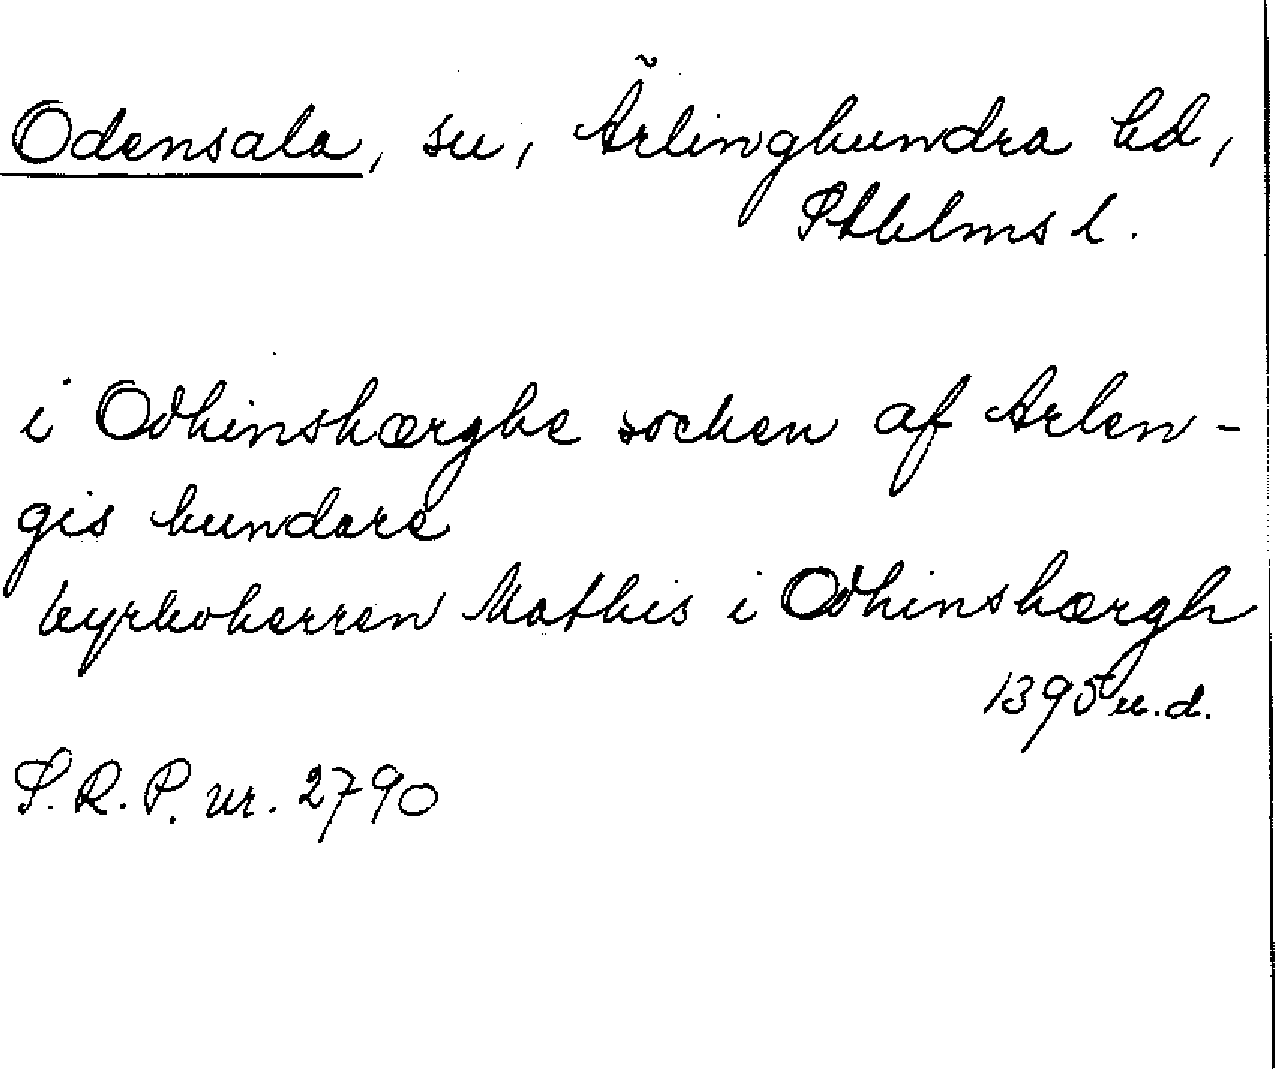 Odensala, sn, Ärlinghundra hd,
Sthlms l.
i Odhinshærghe socken af Arlen-
gis hundare
kyrkoherren Mathis i Odhinshærgh
1395 u.d.
S.R.P. nr. 2790